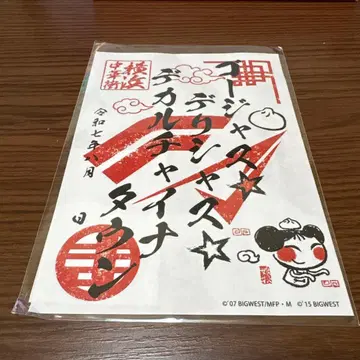 横浜
中華街
ゴージャス☆
デリシャス☆
デカルチャイナ
タウン
令和七年 月 日
©'07 BIGWEST/MFP・M ©'15 BIGWEST